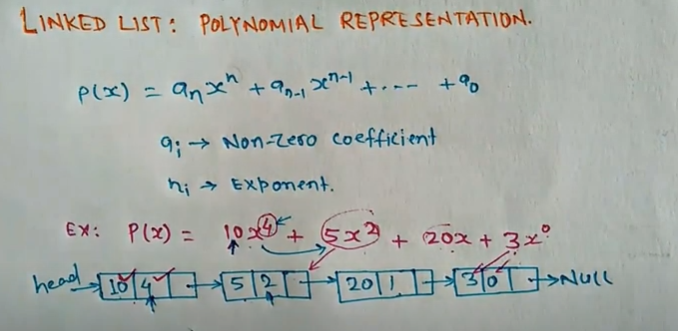 LINKED LIST: POLYNOMIAL REPRESENTATION.
P(x) = aₙxⁿ + aₙ₋₁xⁿ⁻¹ + .... + a₀
aᵢ → Non-zero coefficient
nᵢ → Exponent.
EX: P(x) = 10x⁴ + 5x² + 20x + 3x⁰
head → 10 4 → 5 2 → 20 1 → 3 0 → NULL